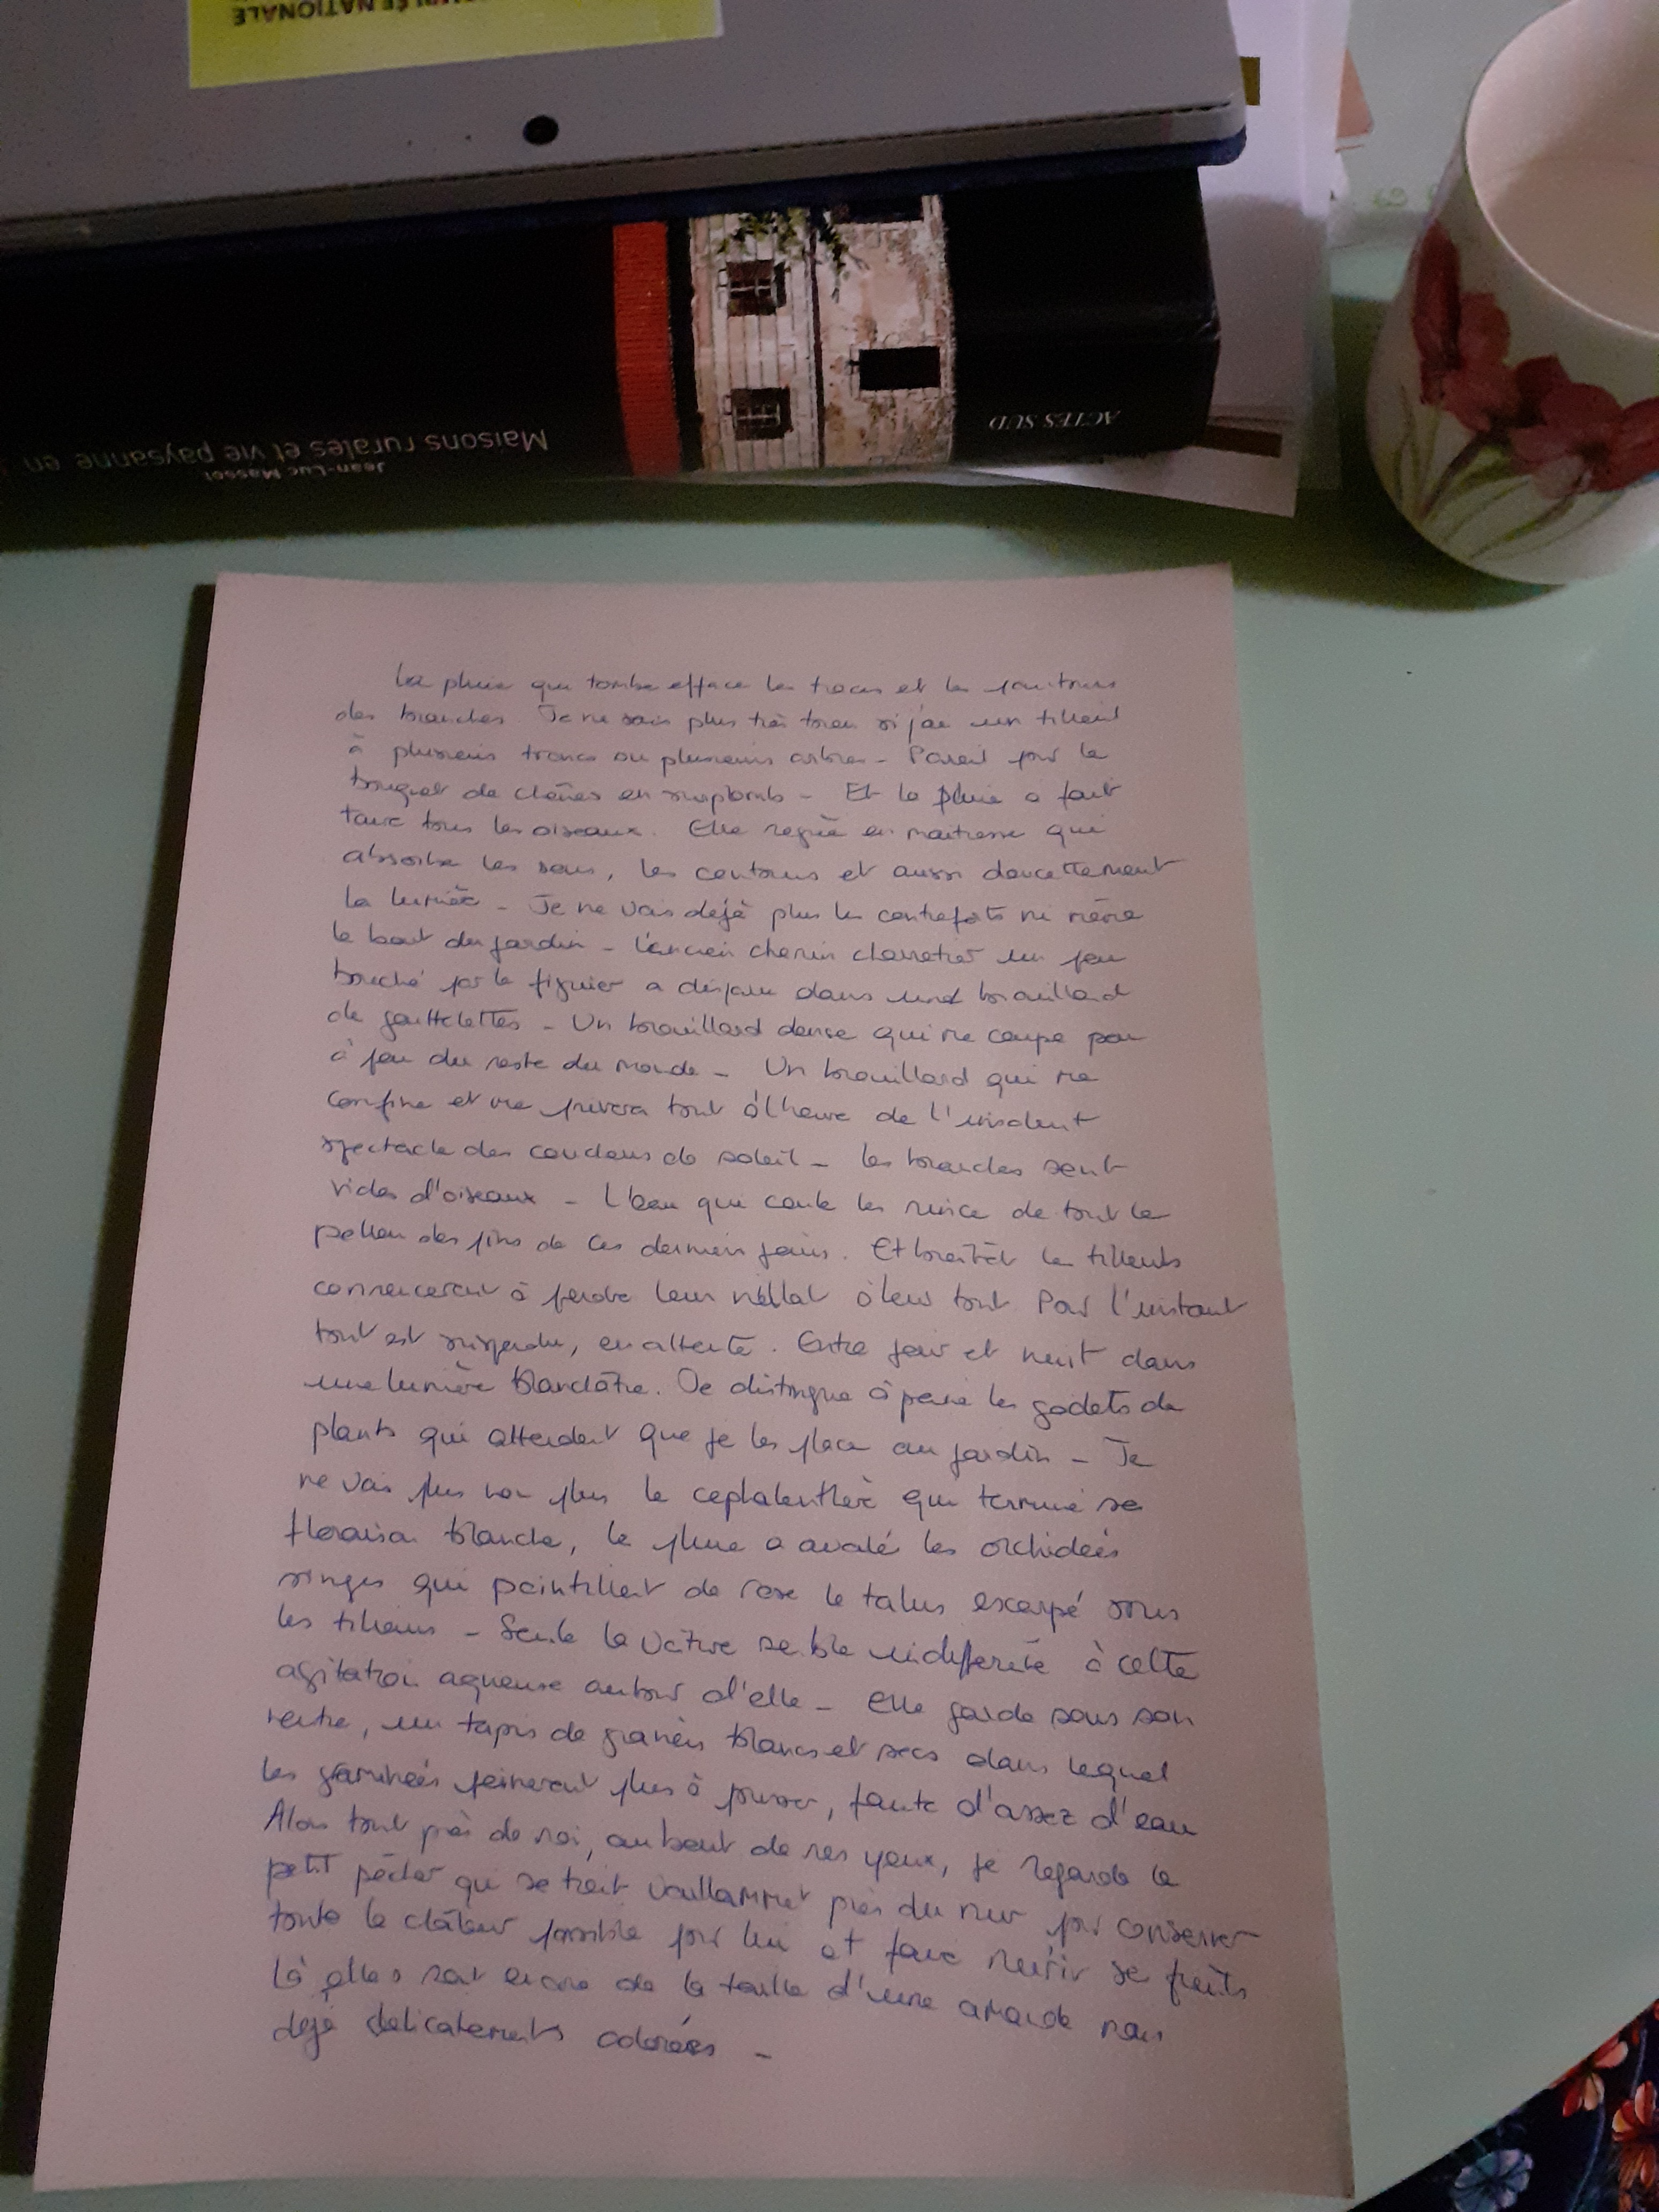 ÉE NATIONALE
Maisons rurales et vie paysanne en
Jean-Luc Massot
ACTES SUD
La pluie qui tombe efface les traces et les contours
des branches. Je ne sais plus très bien si j'ai un tilleul
à plusieurs troncs ou plusieurs arbres - Pareil pour le
bouquet de chênes en surplomb - Et la pluie a fait
taire tous les oiseaux. Elle règne en maitresse qui
absorbe les sons, les contours et aussi doucettement
la lumière - Je ne vois déjà plus les contreforts ni même
le bout du jardin - L'ancien chemin charretier un peu
bouché par le figuier a disparu dans un brouillard
de gouttelettes - Un brouillard dense qui me coupe peu
à peu du reste du monde - Un brouillard qui me
confine et me privera tout à l'heure de l'insolent
spectacle des couchers de soleil - Les branches sont
vides d'oiseaux - L'eau qui coule les rince de tout le
pollen des pins de ces derniers jours. Et bientôt les tilleuls
commenceront à perdre leur à leur tour Pour l'instant
tout est suspendu, en attente. Entre jour et nuit dans
une lumière blanchâtre. Je distingue à peine les godets de
plants qui attendent que je les place au jardin - Je
ne vois plus non plus la céphalenthère qui termine sa
floraison blanche, la pluie a avalé les orchidées
singes qui pointillent de rose le talus escarpé sous
les tilleuls - Seule la voiture semble indifférente à cette
agitation aqueuse autour d'elle - Elle garde sous son
ventre, un tapis de graviers blancs et secs dans lequel
les graminées peineront plus à pousser, faute d'assez d'eau
Alors tout près de moi, au bout de mes yeux, je regarde le
petit pêcher qui se tient vaillamment près du mur pour conserver
toute la chaleur possible pour lui et faire mûrir se fruits
Là elles sont encore de la taille d'une amande mais
déjà délicatements colorées -